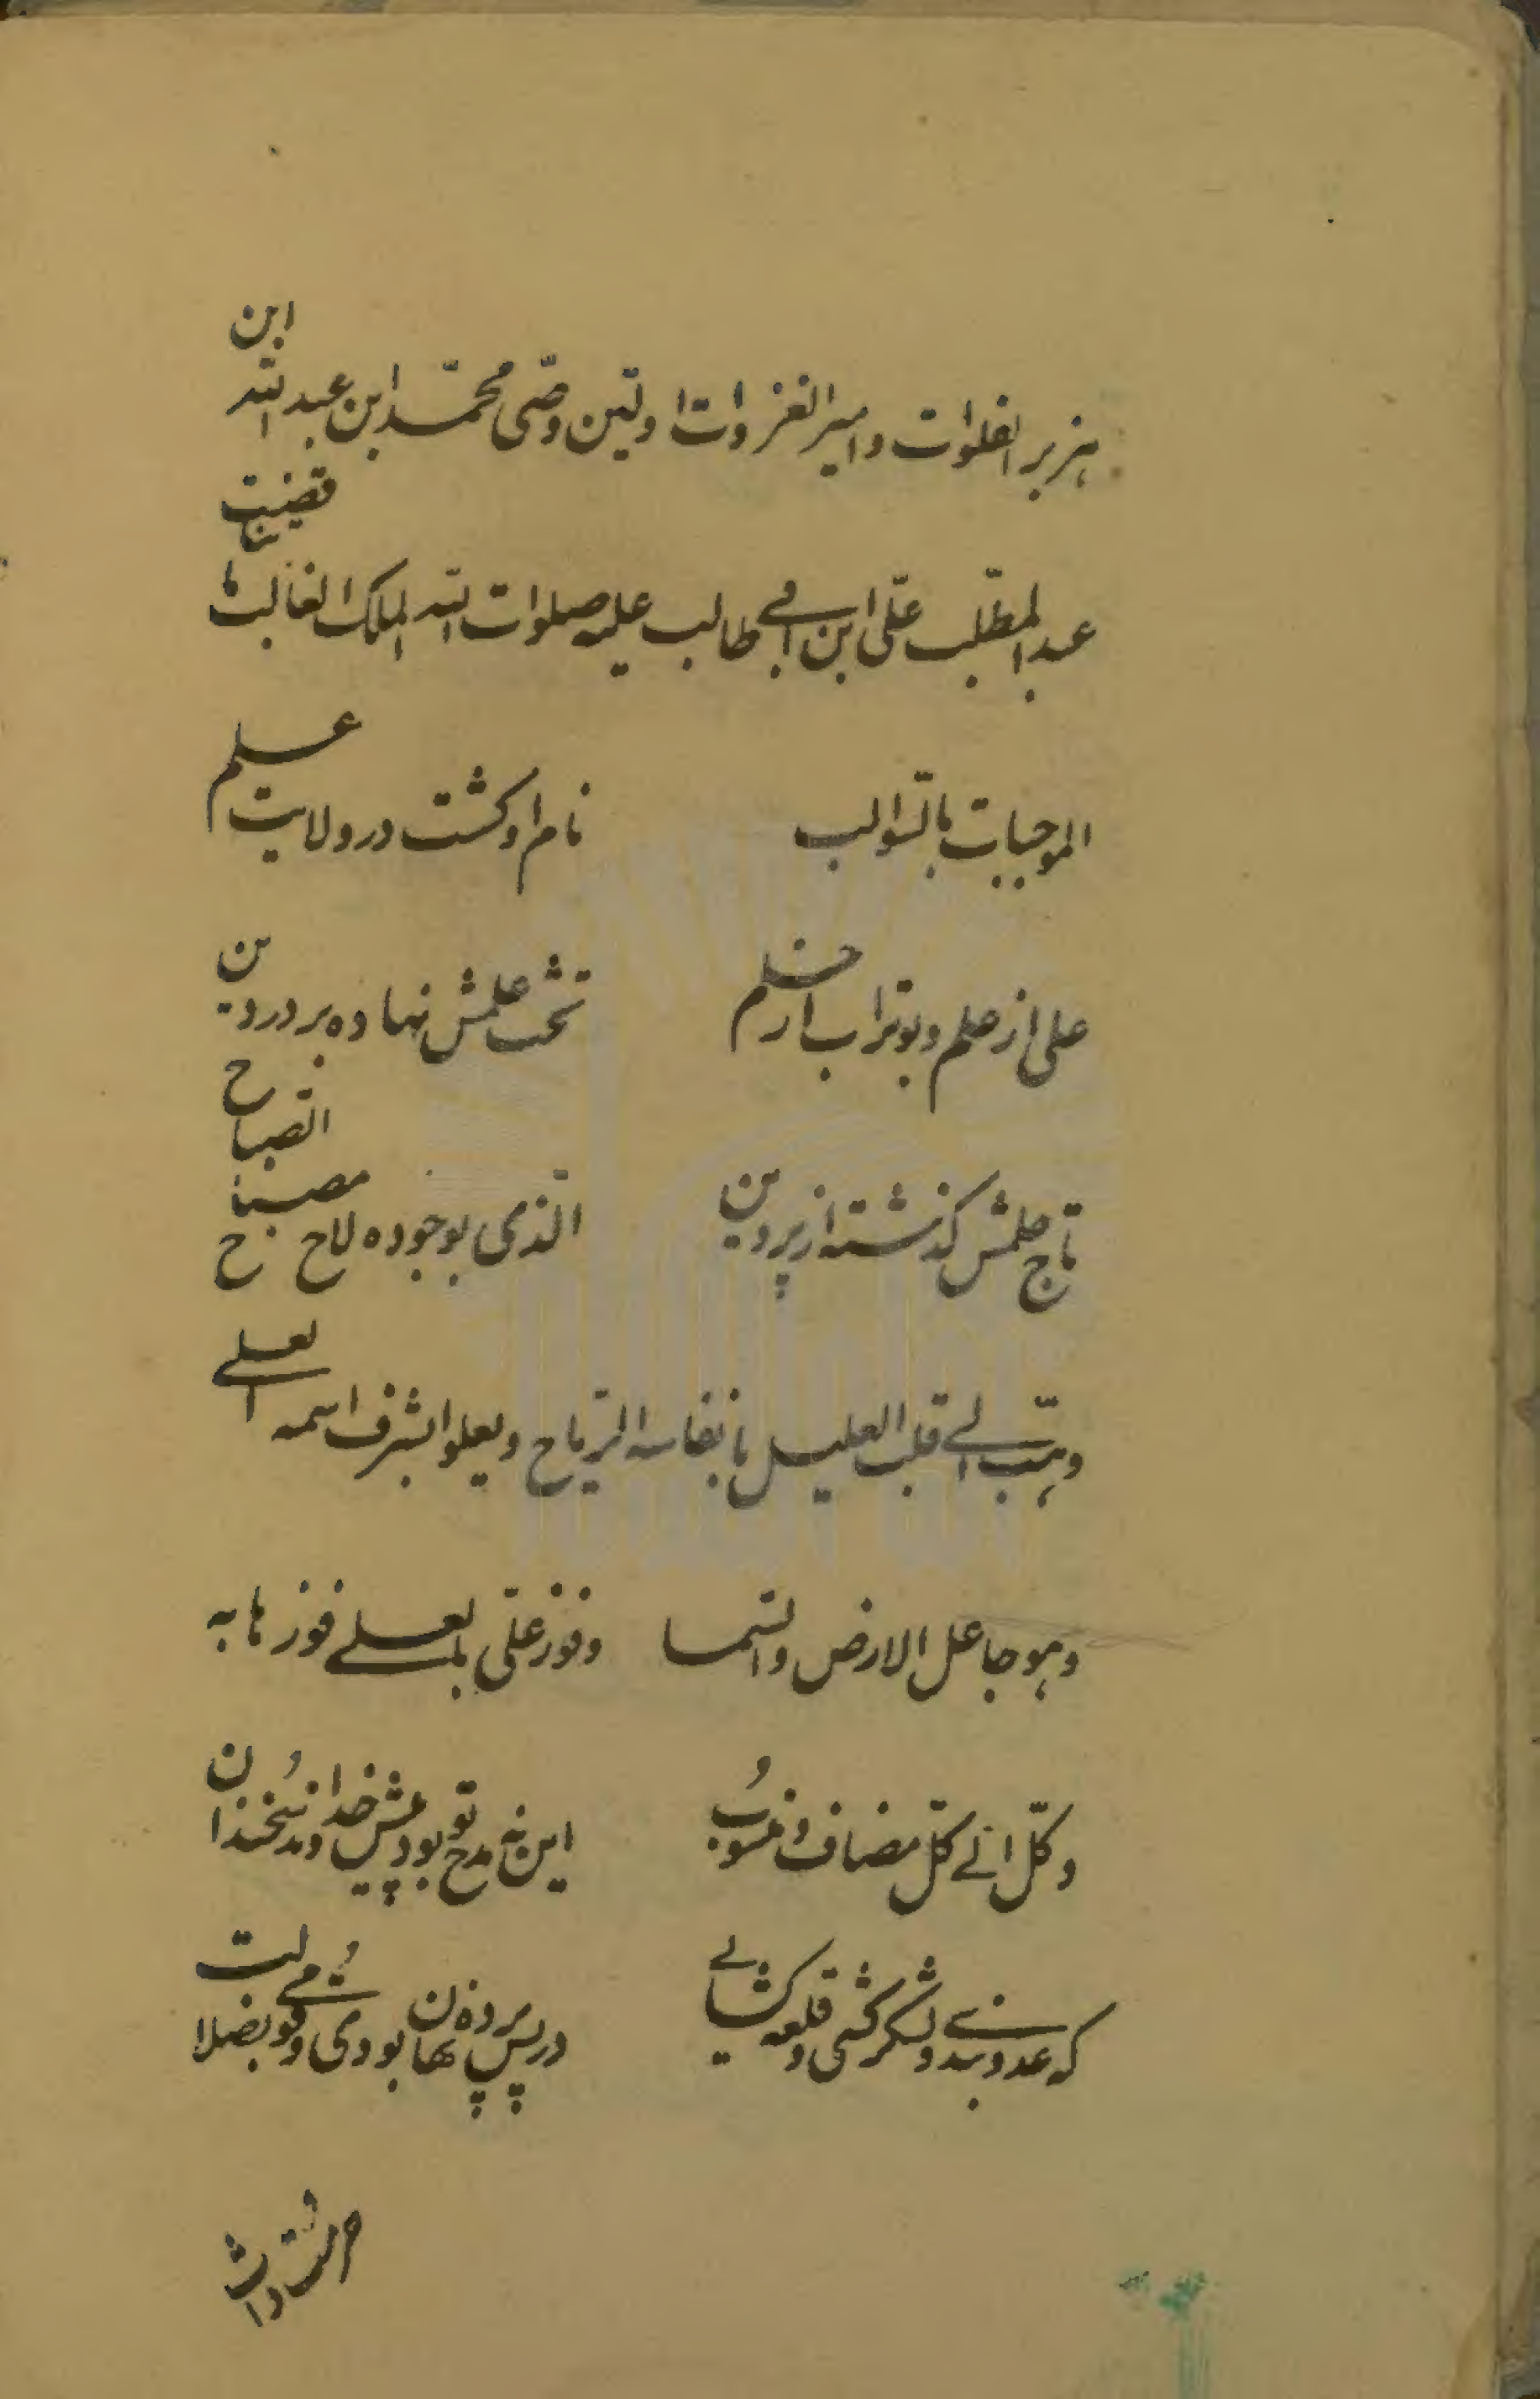 هزبر الفلوات و امیر الغزوات اولین وصّی محمّد ابن عبدالله ابن
عبدالمطّلب علّی ابن ابی طالب علیه صلوات الله الملک الغالب
الموجبات بالسّوالب نام او کشت در ولایت علم
علی از علم و بوتراب از حلم تخت علمش نهاده بر در دین
تاج حلمش کذشته از پروین الّذی بوجوده لاح مصباح الصّباح
وهبّ الی قلب العلیل بانفاسه الرّیاح ویعلو بشرف اسمه العلی
وهو جاعل الارض والسّما وفوز علّی بالعلی فوزها به
وکلّ الی کلّ مضاف ومنسوبُ این نه مدح تو بود پیش خداوندُ سخندان
که عدو بندی ولشکر کشی وقلعه کشایی در پس پرده نهان بودی وقومی بضلالت